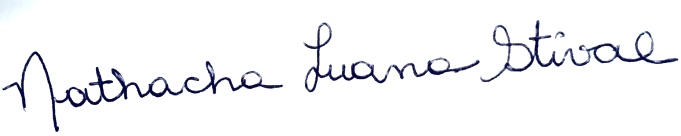 Nathacha Luana Stival